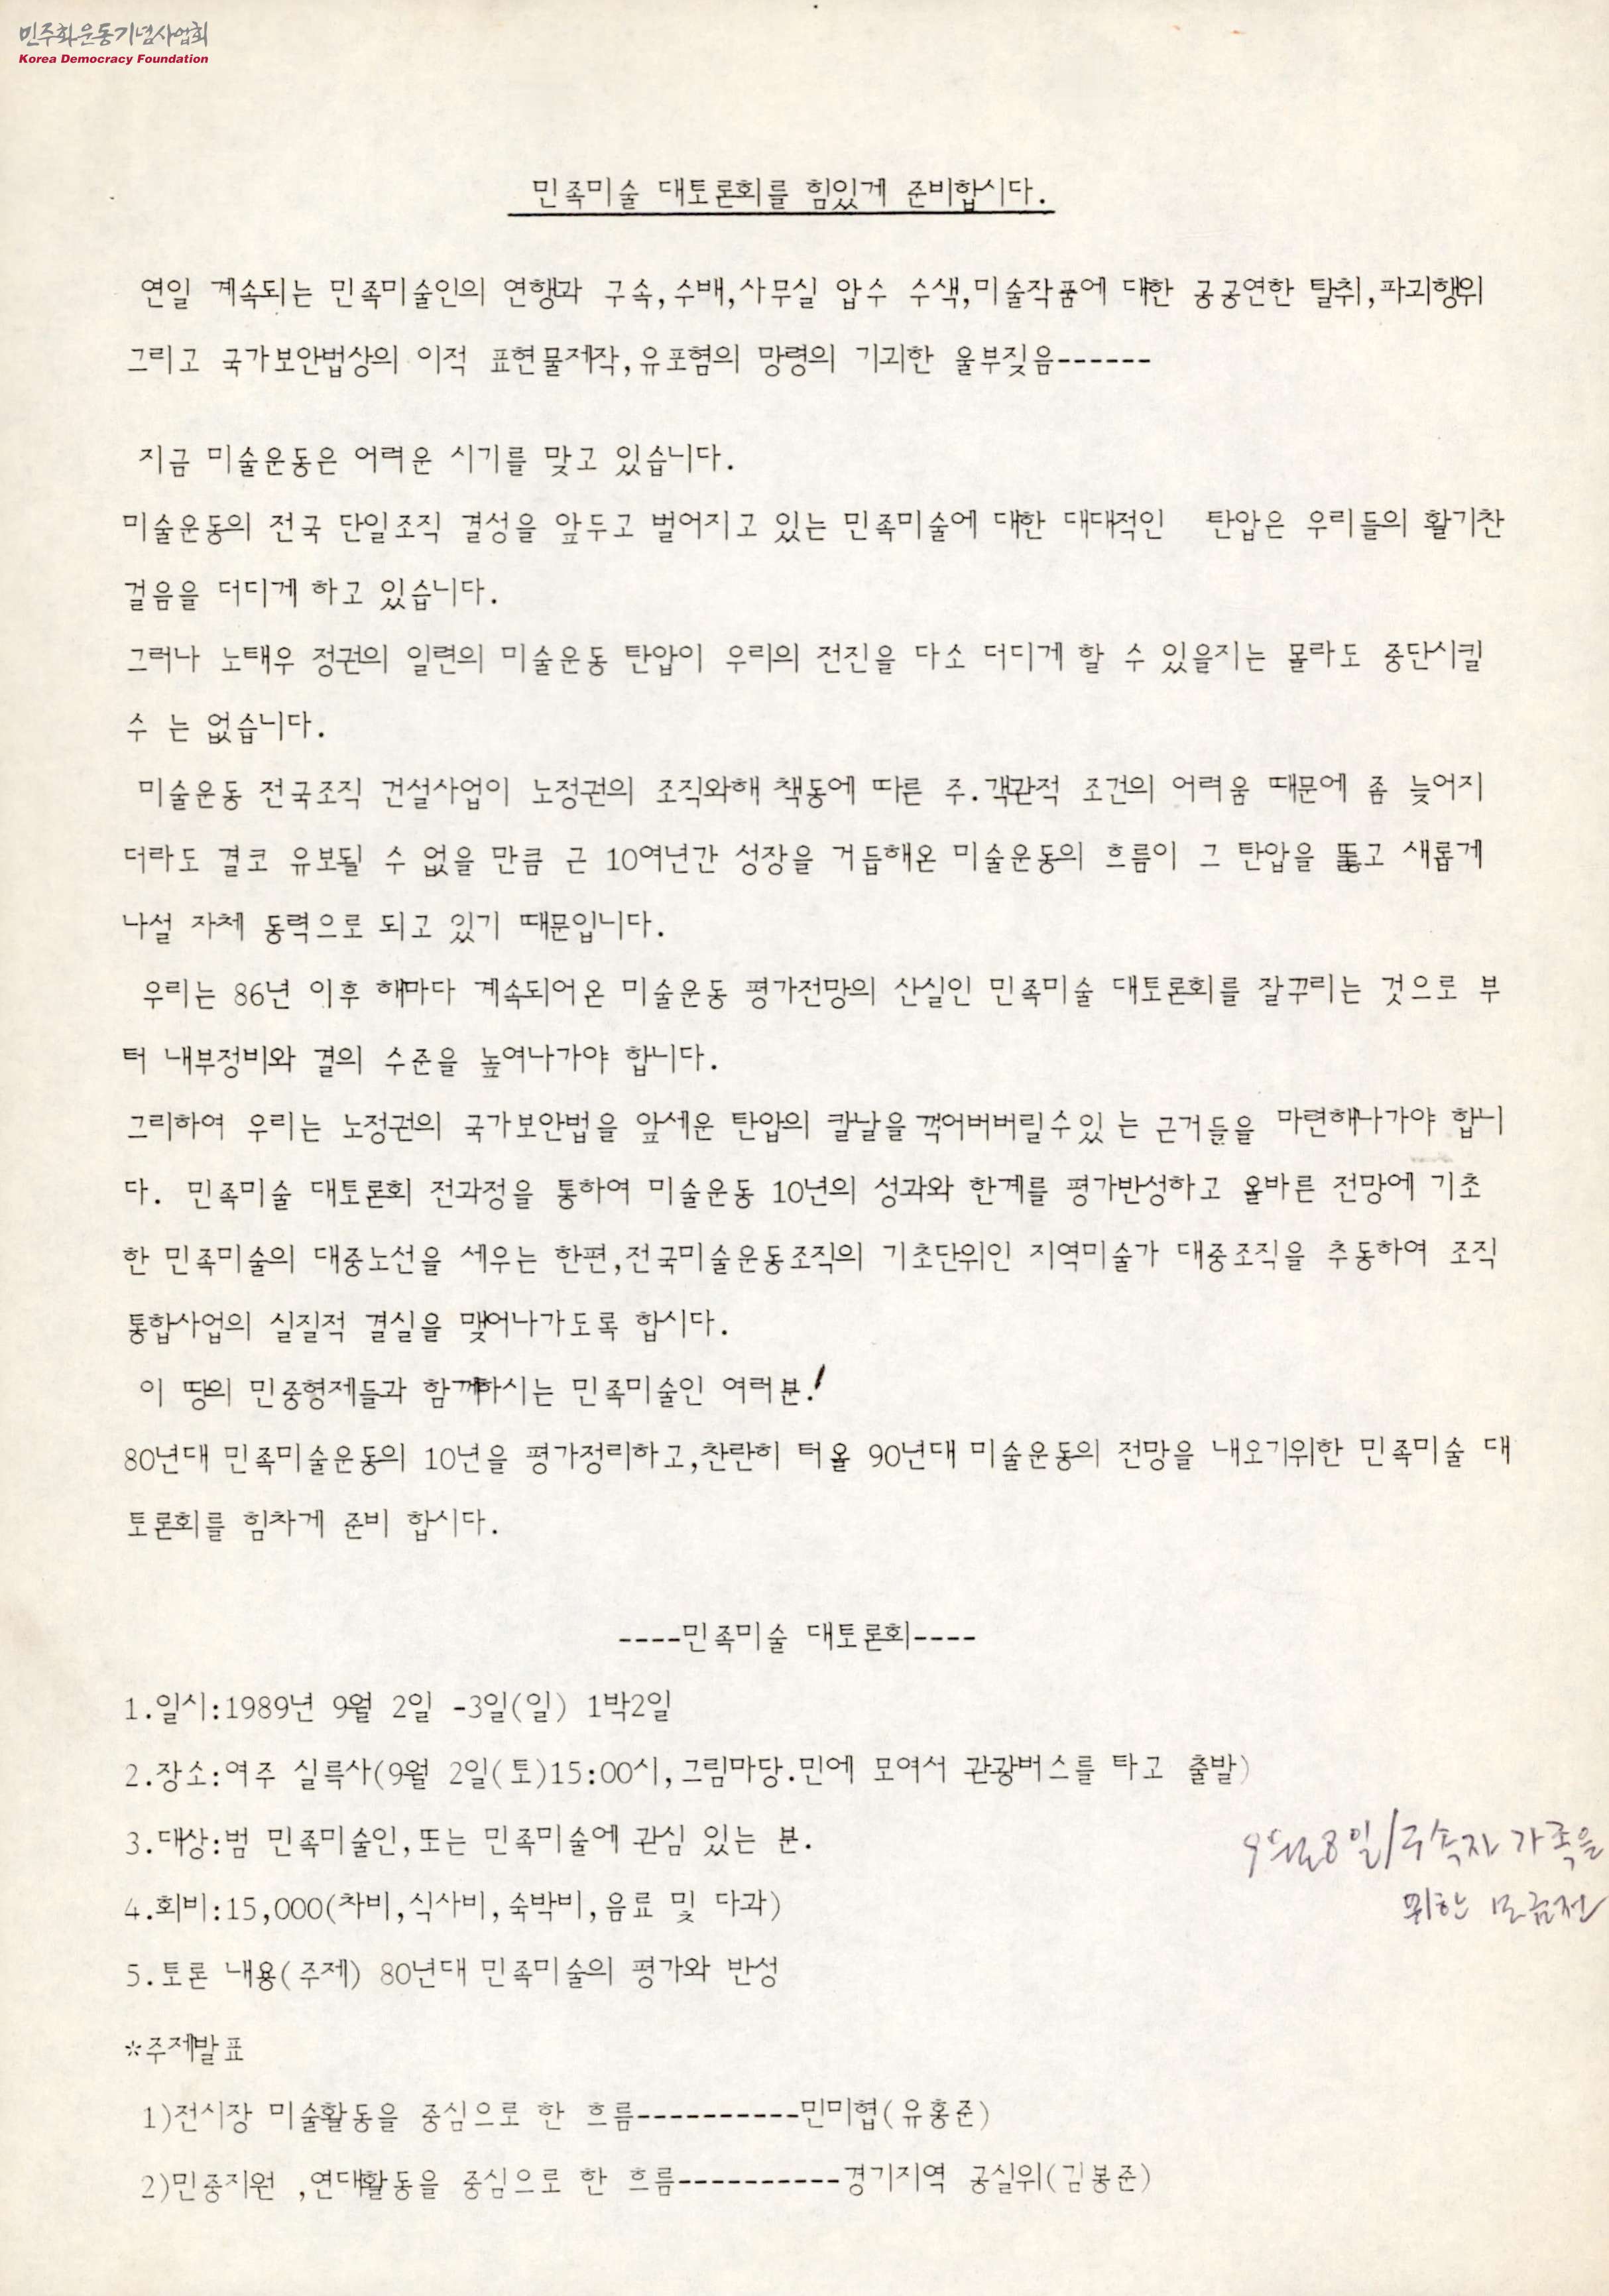 민주화운동기념사업회
Korea Democracy Foundation
민족미술 대토론회를 힘있게 준비합시다.
연일 계속되는 민족미술인의 연행과 구속,수배,사무실 압수 수색,미술작품에 대한 공공연한 탈취,파괴행위
그리고 국가보안법상의 이적 표현물제작,유포혐의 망령의 기괴한 울부짖음------
지금 미술운동은 어려운 시기를 맞고 있습니다.
미술운동의 전국 단일조직 결성을 앞두고 벌어지고 있는 민족미술에 대한 대대적인 탄압은 우리들의 활기찬
걸음을 더디게 하고 있습니다.
그러나 노태우 정권의 일련의 미술운동 탄압이 우리의 전진을 다소 더디게 할 수 있을지는 몰라도 중단시킬
수 는 없습니다.
미술운동 전국조직 건설사업이 노정권의 조직와해 책동에 따른 주.객관적 조건의 어려움 때문에 좀 늦어지
더라도 결코 유보될 수 없을 만큼 근 10여년간 성장을 거듭해온 미술운동의 흐름이 그 탄압을 뚫고 새롭게
나설 자체 동력으로 되고 있기 때문입니다.
우리는 86년 이후 해마다 계속되어온 미술운동 평가전망의 산실인 민족미술 대토론회를 잘꾸리는 것으로 부
터 내부정비와 결의 수준을 높여나가야 합니다.
그리하여 우리는 노정권의 국가보안법을 앞세운 탄압의 칼날을 꺽어버버릴수있 는 근거들을 마련해나가야 합니
다. 민족미술 대토론회 전과정을 통하여 미술운동 10년의 성과와 한계를 평가반성하고 올바른 전망에 기초
한 민족미술의 대중노선을 세우는 한편,전국미술운동조직의 기초단위인 지역미술가 대중조직을 추동하여 조직
통합사업의 실질적 결실을 맺어나가도록 합시다.
이 땅의 민중형제들과 함께하시는 민족미술인 여러분!
80년대 민족미술운동의 10년을 평가정리하고,찬란히 터올 90년대 미술운동의 전망을 내오기위한 민족미술 대
토론회를 힘차게 준비 합시다.
----민족미술 대토론회----
1.일시:1989년 9월 2일 -3일(일) 1박2일
2.장소:여주 실륵사(9월 2일(토)15:00시,그림마당.민에 모여서 관광버스를 타고 출발)
3.대상:범 민족미술인,또는 민족미술에 관심 있는 분.
9월8일/구속자 가족을
4.회비:15,000(차비,식사비,숙박비,음료 및 다과)
위한 모금전
5.토론 내용(주제) 80년대 민족미술의 평가와 반성
*주제발표
1)전시장 미술활동을 중심으로 한 흐름----------민미협(유홍준)
2)민중지원 ,연대활동을 중심으로 한 흐름----------경기지역 공실위(김봉준)